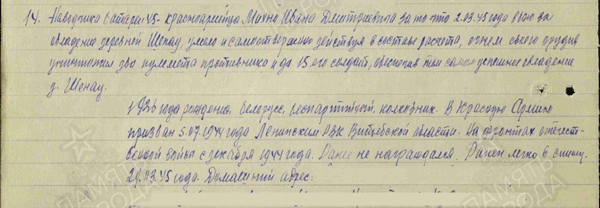 14. Наводчика батареи 45- красноармейца Махна Ивана Дмитриевича за то что 2.03.45 года в бою за
овладение деревней Шенау, умело и самоотверженно действуя в составе расчета, огнем своего орудия
уничтожил два пулемета противника и до 15 его солдат, обеспечив тем самым успешное овладение
д. Шенау.
1926 года рождения, белорус, беспартийный, колхозник. В Красную Армию
призван 5.07.1944 года Ленинским РВК Витебской области. На фронтах отечест-
венной войны с декабря 1944 года. Ранее не награждался. Ранен легко в спину
29.03.45 года. Домашний адрес: